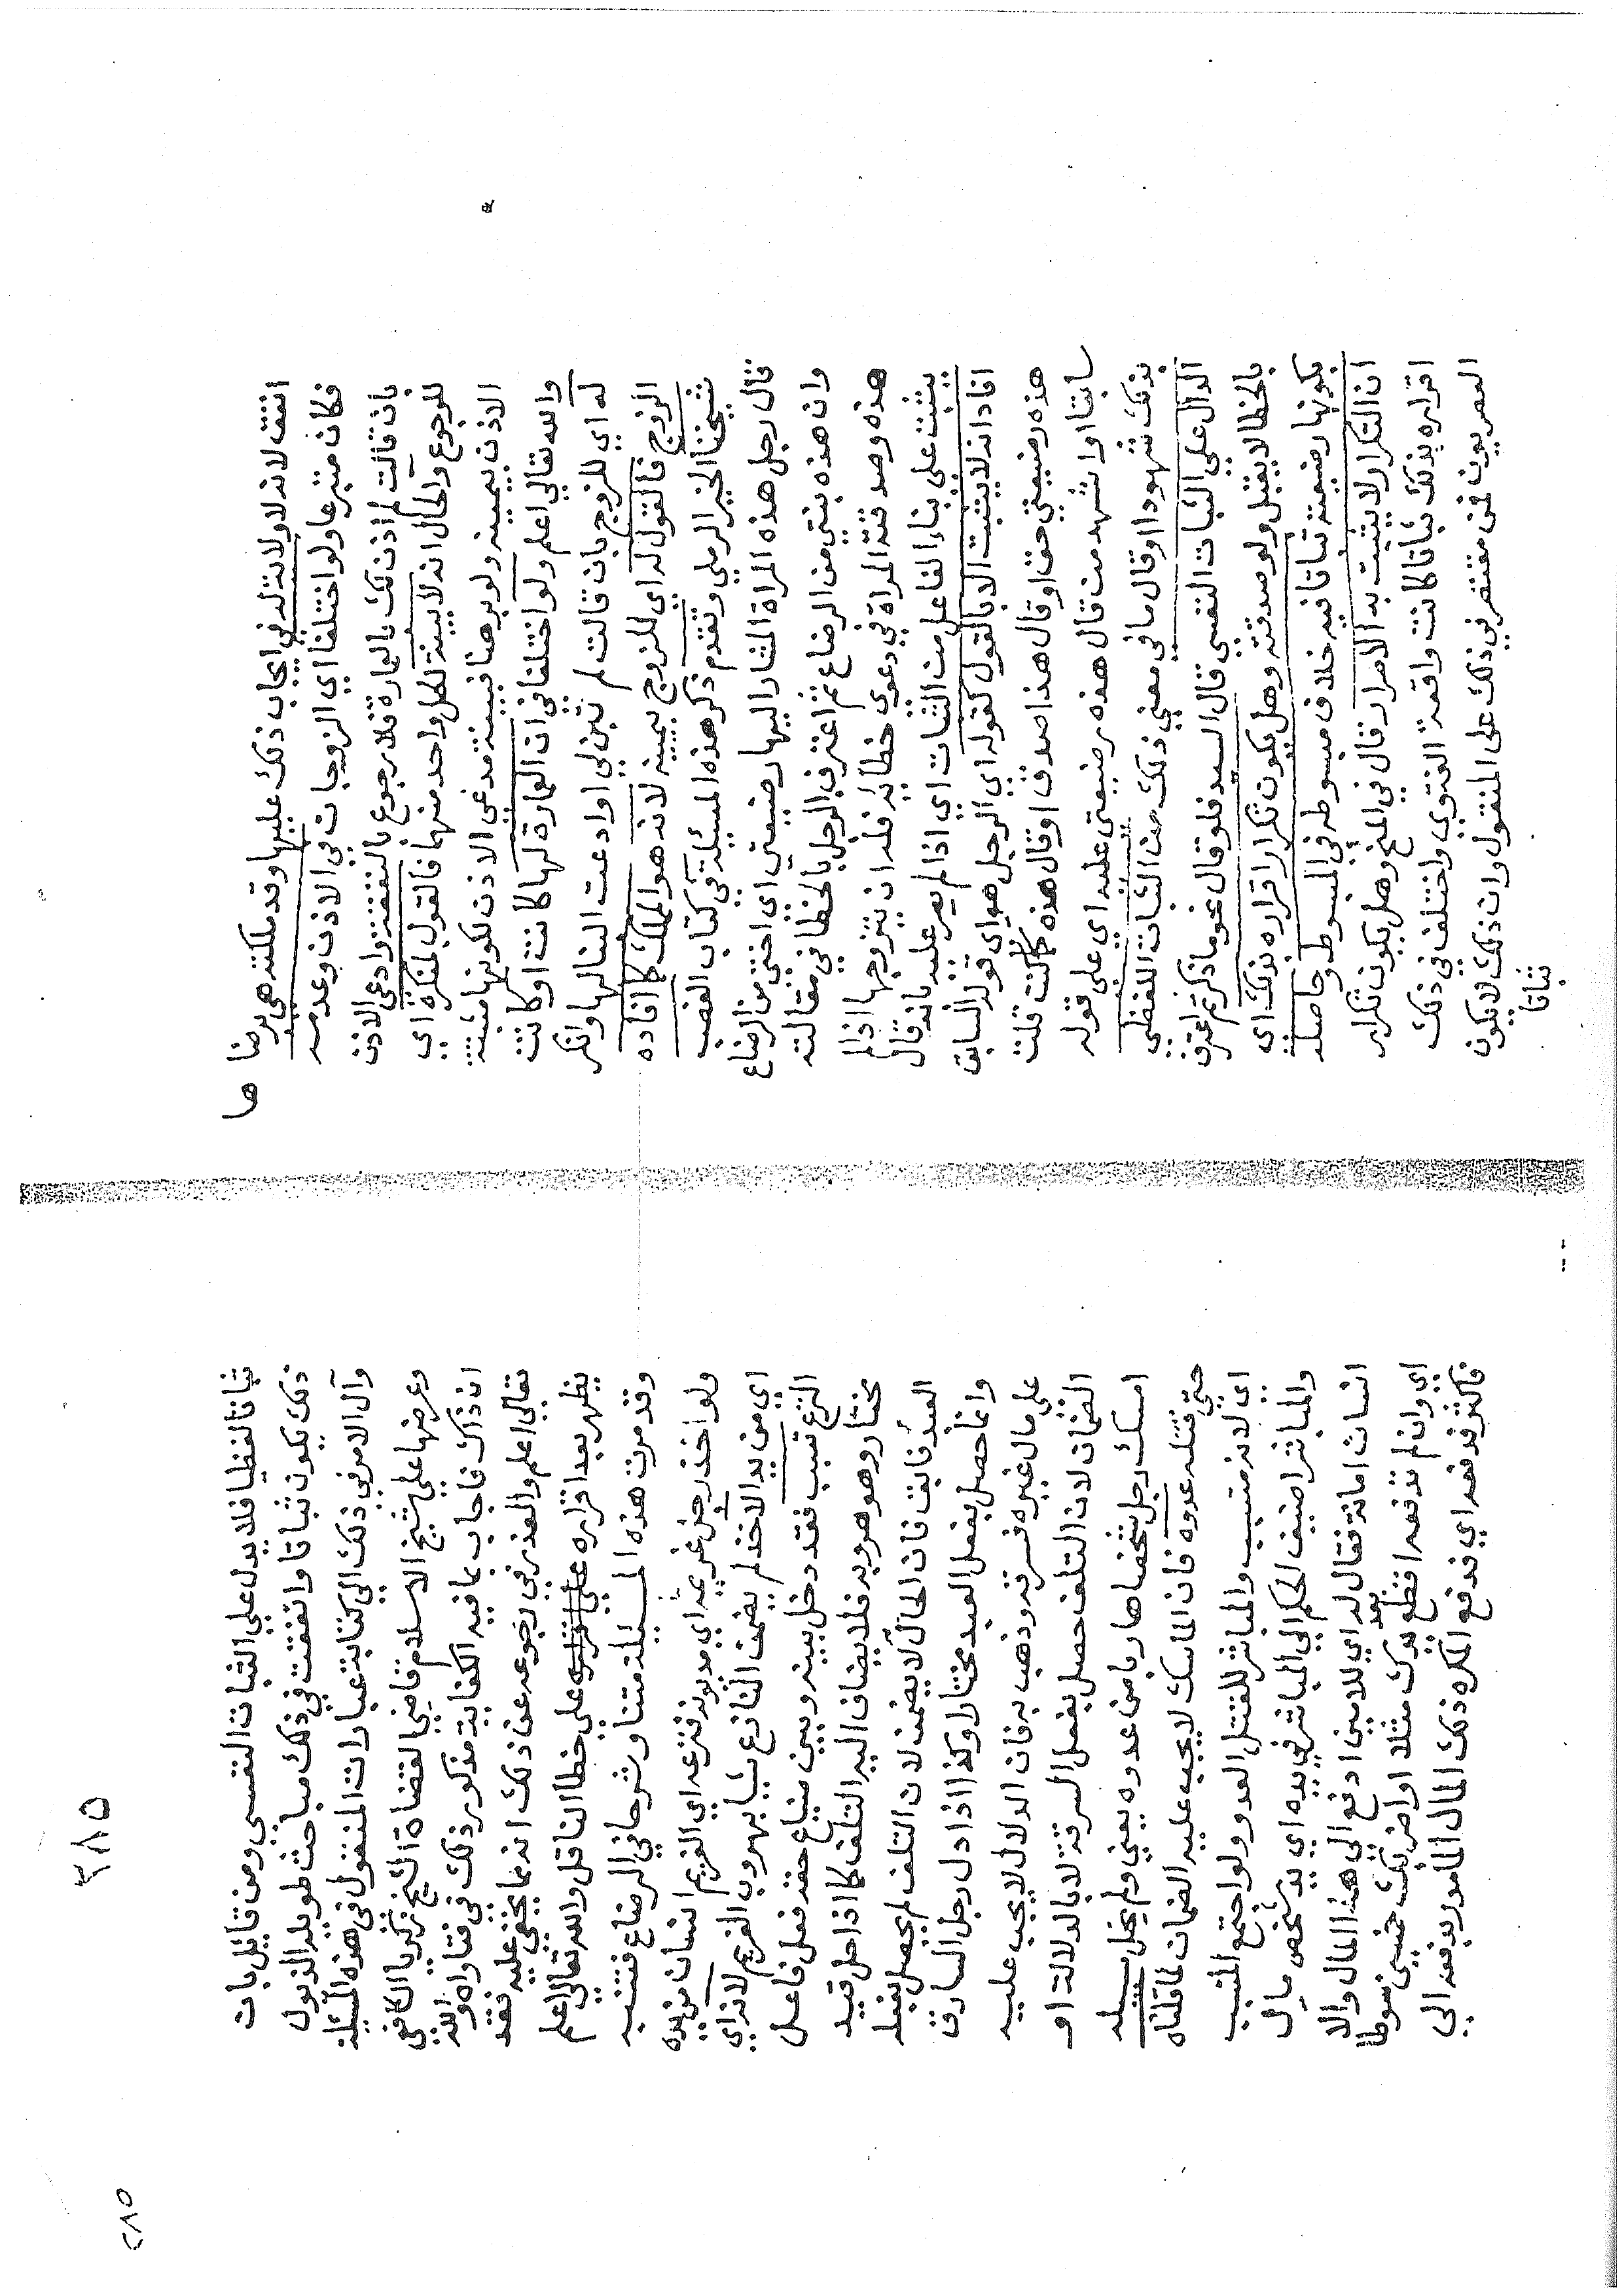 انفق لانه لا ولاية له في ايجاب ذلك عليها وقد ملكته هي برضاها
فكان متبرعا ولو اختلفا اي الزوجات في الاذن وعدمه
بان قالت لم اذن لك بالعمارة فلا رجوع بالنفقة وادعى الاذن
للرجوع والحال انه لا بينة لكل واحد منهما فالقول لمنكره اي
الاذن بيمينه ولو برهنا فبينة مدعي الاذن لكونها مثبتة
والله تعالي اعلم ولو اختلفا في ان العمارة لها كانت او كانت
له اي للزوج بان قالت لم تبن لي او ادعت البنا لها وانكر
الزوج فالقول له اي للزوج بيمينه لانه هو المملك كما افاده
شيخنا الخير الرملي وتقدم ذكر هذه المسئلة في كتاب الغصب
قال رجل هذه المراة المشار اليها رضيعتي اي اختي من الرضاع
وان هذه بنتي من الرضاع ثم اعترف الرجل بالخطا في مقالته
هذه وصدقته المراة في دعوى خطايه فله ان يتزوجها اذا لم
يثبت على بناء الفاعل من الثبات اي اذا لم يصر عليه بانه قال
افاد انه لا يثبت الا بالقول كقوله اي الرجل هو اي قوله السابق
هذه رضيعتي حق او قال هذا صدق او قال هذه كما قلت
سابقا او اشهد من قال هذه رضيعتي عليه اي على قوله
بذلك شهودا او قال ما في معني ذلك من الثبات اللفظي
الدال علي الثبات النفسي قال السيد فلو قال نحو ما ذكر ثم اعترف
بالخطا لا يقبل ولو صدقته وهل يكون تكرار اقراره بذلك اي
بكونها رضيعته ثباتا فيه خلاف مبسوط في المبسوط وحاصله
ان التكرار لا يثبت به الاصرار قال في المنح وهل يكون تكرير
اقراره بذلك ثباتا كانت واقعة الفتوي واختلف في ذلك
المصريون فمن مقتصر في ذلك على المنقول وان ذلك لا يكون
ثباتا
٣٨٥
ثباتا لفظيا فلا يدل علي الثبات النفسي ومن قايل بان
ذلك يكون ثباتا واتفقت في ذلك مباحث طويلة الذيول
وآل الامر في ذلك الي كتابة عبارات المنقول في هذه المسئلة
وعرضها علي شيخ الاسلام قاضي القضاة الشيخ زكريا الشافعي
ان ذاك فاجاب بما فيه الكفاية مذكور ذلك في فتاواه والله
تعالي اعلم والعذر في رجوعه عن ذلك انه مما يخفي عليه فقد
يظهر بعد اقراره علي خطا الناقل والله تعالي اعلم
وقد مرت هذه المسئلة متنا وشرحا في الرضاع فتنبه
ولو اخذ رجل غريمه اي مديونه فنزعه اي الغريم انسان من يده
اي من يد الاخذ لم يضمن النازع شيا بهروب الغريم لانه اي
النزع تسبب فقد دخل بينه وبين ضياع حقه فعل فاعل
مختار وهو هروبه فلا يضاف اليه التلف كما اذا حل قيد
العبد فابق فان الحال لا يضمن لان التلف لم يحصل بفعله
وانما حصل بفعل العبد مختارا وكذا اذا دل رجل السارق
علي مال غيره فسرقه وذهب به فان الدلال لا يجب عليه
الضمان لان التلف حصل بفعل السرقة لا بالدلالة او
امسك رجل شخصا هاربا من عدوه يعني ولم يخل سبيله
حتي قتله عدوه فان الماسك لا يجب عليه الضمان لما قلناه
اي لانه متسبب والمباشر للقتل العدو ولو اجتمع المتسبب
والمباشر اضيف الحكم الي المباشر في يده اي يد شخص مال
انسان امانة فقال له اي للامين ادفع الي هذا المال والا
اي وان لم تدفعه اقطع يدك مثلا او اضربك خمسين سوطا
فاكثر فدفعه اي فدفع المكره ذلك المال المأمور بدفعه الي
٢٨٥